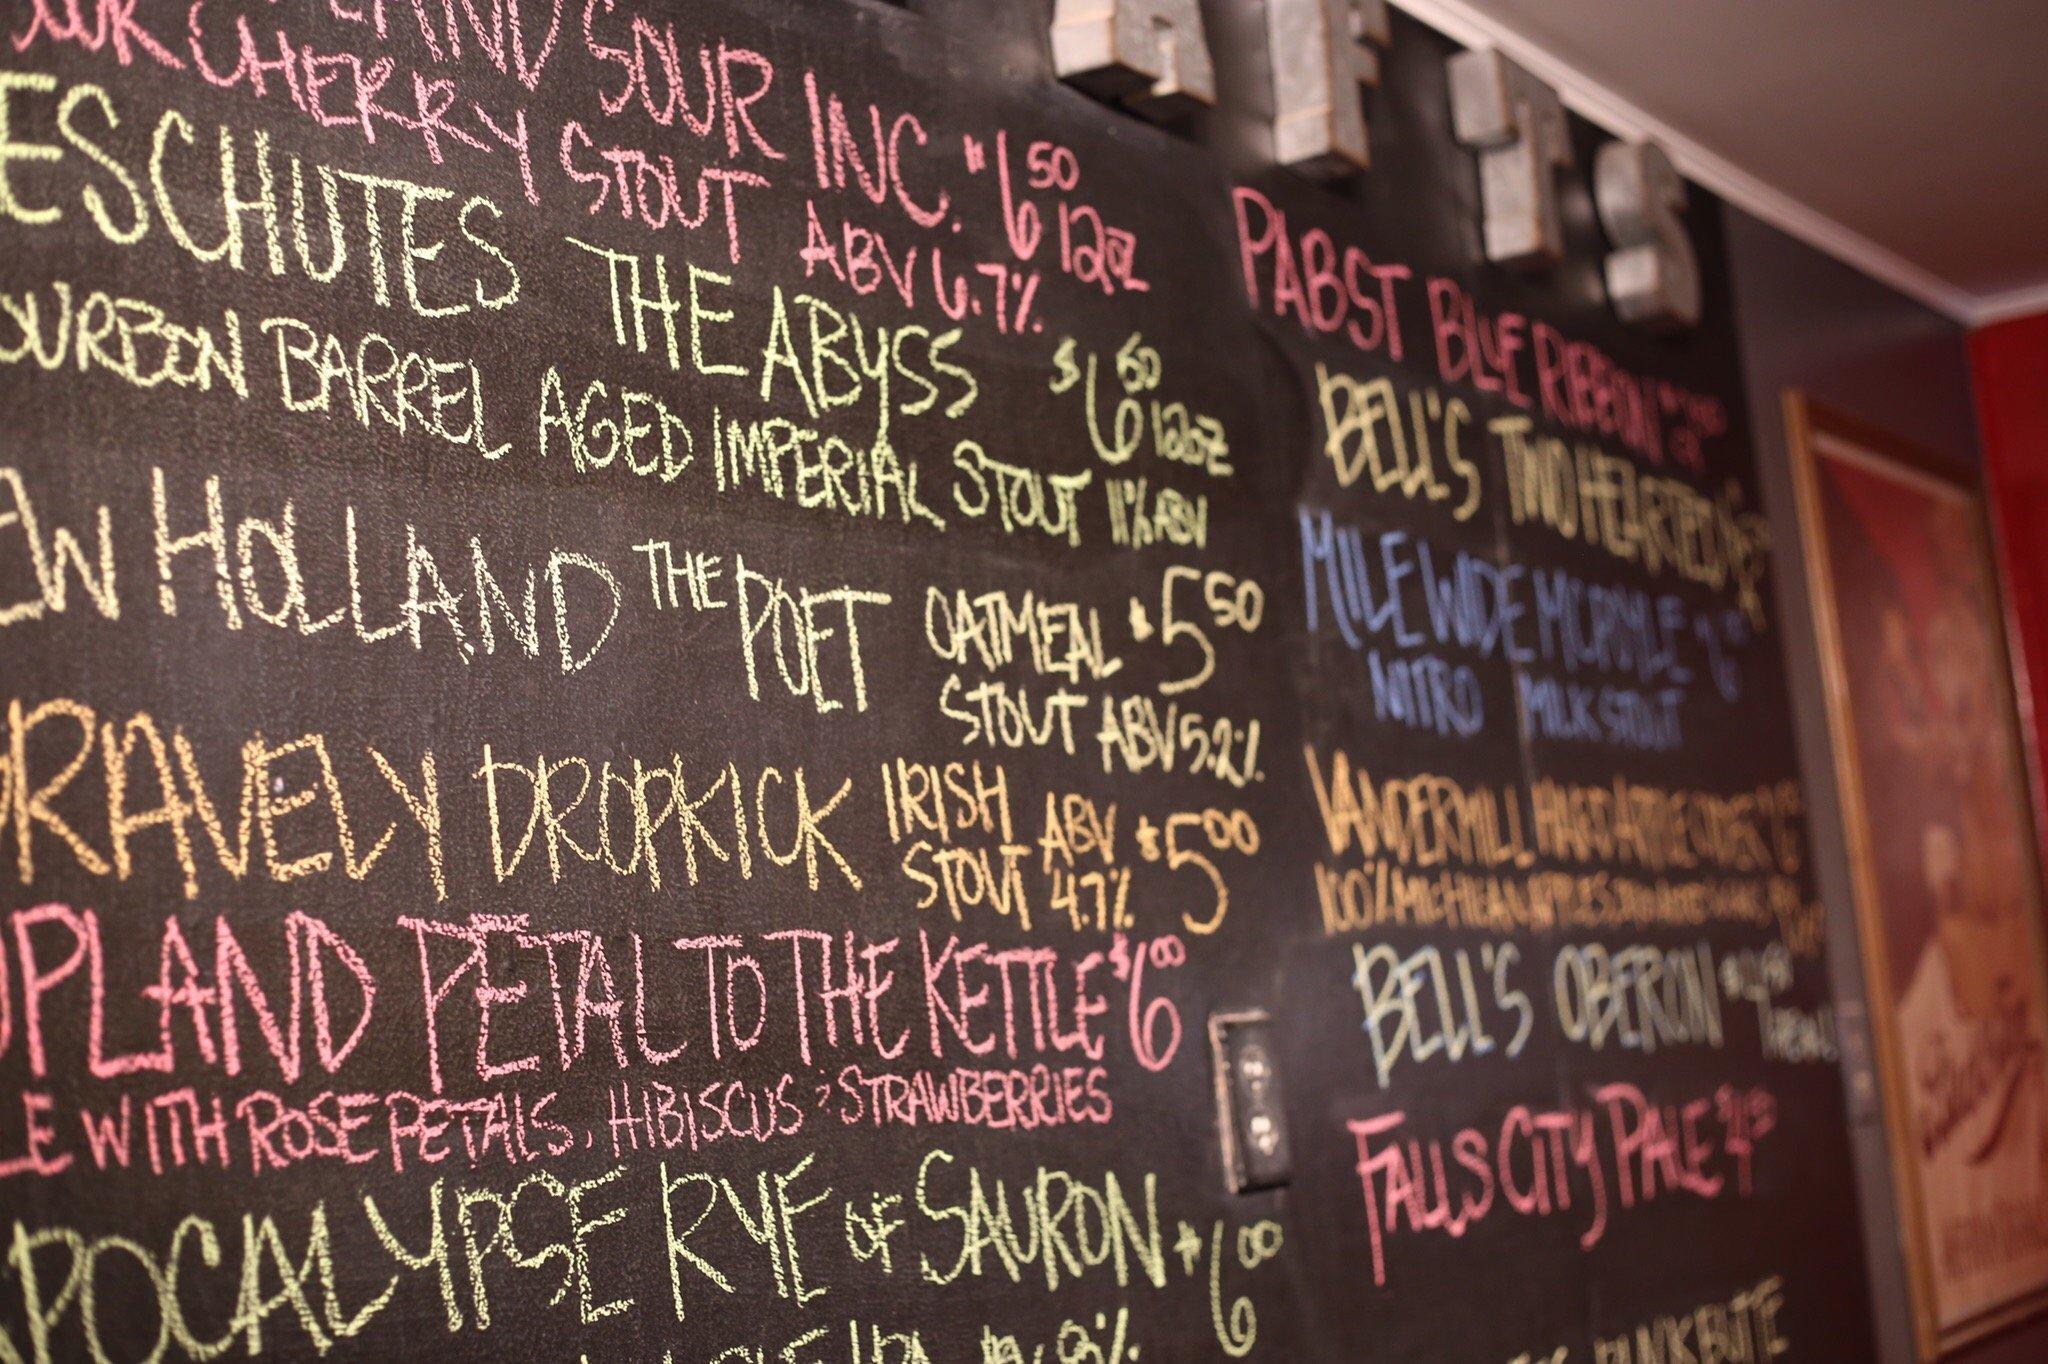 AND SOUR INC. $6 50 12oz
CHERRY STOUT ABV 6.7%
ESCHUTES THE ABYSS $6 50 12oz
OURBON BARREL AGED IMPERIAL STOUT 11% ABV
EW HOLLAND THE POET OATMEAL STOUT ABV 5.2% $5 50
RAVELY DROPKICK IRISH STOUT ABV 4.7% $5 00
UPLAND PETAL TO THE KETTLE $6 00
LE WITH ROSE PETALS, HIBISCUS & STRAWBERRIES
APOCALYPSE RYE OF SAURON $6 00
IPA ABV 8%
AFTS
PABST BLUE RIBBON
BELL'S TWO HEARTED
MILE WIDE
NITRO MILK STOUT
VANDERMILL HARD APPLE CIDER
100% MICHIGAN APPLES
BELL'S OBERON
FALLS CITY PALE